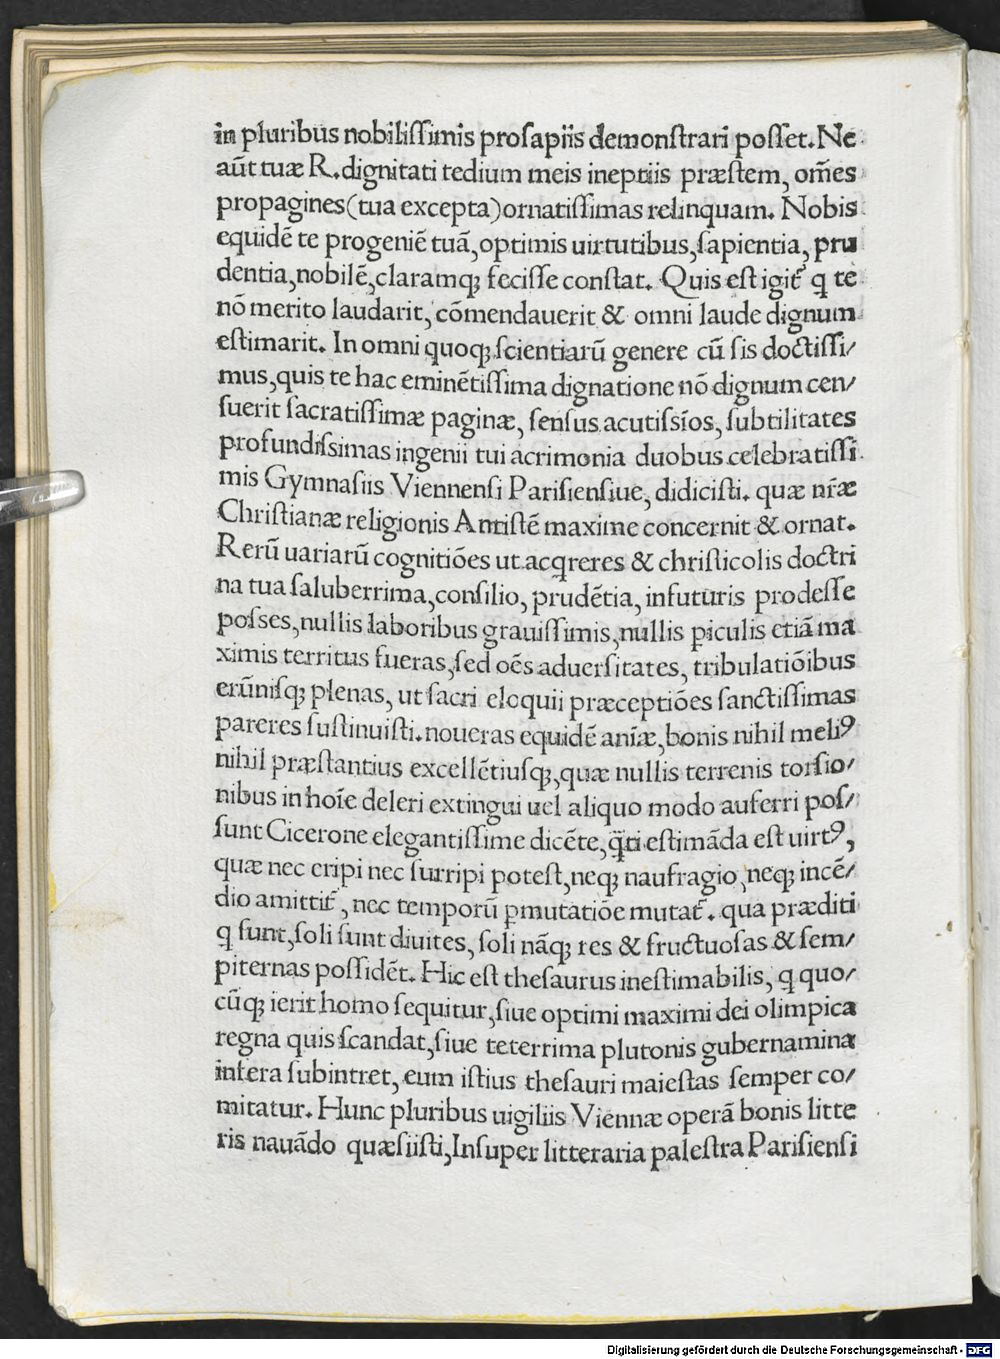 in pluribus nobiliſſimis proſapiis demonſtrari poſſet. Ne
aũt tuæ R. dignitati tedium meis ineptiis præſtem, om̃es
propagines (tua excepta) ornatiſſimas relinquam. Nobis
equidẽ te progeniẽ tuã, optimis uirtutibus, ſapientia, pru
dentia, nobilẽ, claramq; feciſſe conſtat. Quis eſt igit̃ q te
nõ merito laudarit, cõmendauerit & omni laude dignum
eſtimarit. In omni quoq; ſcientiarũ genere cũ ſis doctiſſi/
mus, quis te hac eminẽtiſſima dignatione nõ dignum cen/
ſuerit ſacratiſſimæ paginæ, ſenſus acutiſsĩos, ſubtilitates
profundiſsimas ingenii tui acrimonia duobus celebratiſſi
mis Gymnaſiis Viennenſi Pariſienſiue, didiciſti. quæ nr̃æ
Chriſtianæ religionis Antiſtẽ maxime concernit & ornat.
Rerũ uariarũ cognitiões ut acqreres & chriſticolis doctri
na tua ſaluberrima, conſilio, prudẽtia, infuturis prodeſſe
poſses, nullis laboribus grauiſſimis, nullis ꝑiculis etiã ma
ximis territus fueras, ſed oẽs aduerſitates, tribulatiõibus
erũniſq; plenas, ut ſacri eloquii præceptiões ſanctiſſimas
pareres ſuſtinuiſti. noueras equidẽ anĩæ, bonis nihil meliꝰ
nihil præſtantius excellẽtiuſq;, quæ nullis terrenis torſio/
nibus in hoĩe deleri extingui uel aliquo modo auferri poſ/
ſunt Cicerone elegantiſſime dicẽte, q̃ti eſtimãda eſt uirtꝰ,
quæ nec eripi nec ſurripi poteſt, neq; naufragio, neq; incẽ/
dio amittit̃, nec temporũ ꝑmutatiõe mutat̃. qua præditi
q ſunt, ſoli ſunt diuites, ſoli nãq; res & fructuoſas & ſem/
piternas poſſidẽt. Hic eſt theſaurus ineſtimabilis, q quo/
cũq; ierit homo ſequitur, ſiue optimi maximi dei olimpica
regna quis ſcandat, ſiue teterrima plutonis gubernamina
infera ſubintret, eum iſtius theſauri maieſtas ſemper co/
mitatur. Hunc pluribus uigiliis Viennæ operã bonis litte
ris nauãdo quæſiiſti, Inſuper litteraria paleſtra Pariſienſi
Digitalisierung gefördert durch die Deutsche Forschungsgemeinschaft - DFG